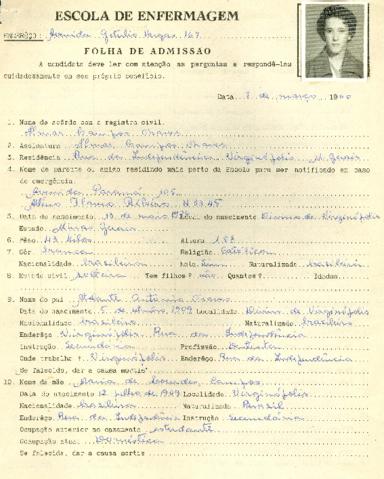 ESCOLA DE ENFERMAGEM
ENDERÊÇO: Avenida Getúlio Vargas 167
FOLHA DE ADMISSÃO
A candidata deve ler com atenção as perguntas e respondê-las
cuidadosamente em seu próprio benefício.
Data 8 de março 1960
1. Nome de acôrdo com o registro civil.
Campos
2. Assinatura Campos
3. Residência Rua da Independência Virginópolis M. Gerais
4. Nome de parente ou amigo residindo mais perto da Escola para ser notificado em caso
de emergência.
Avenida Paraná
Ribeiro
5. Data do nascimento 10 de maio Local do nascimento Virginópolis
Estado. Minas Gerais
6. Pêso. 43 kilos Altura 1.53
7. Côr. branca Religião. Católica
Nacionalidade. brasileira Nata. Naturalizada. brasileira
8. Estado civil solteira Tem filhos? não Quantos? Idades.
9. Nome do pai Antônio
Data do nascimento 5 de 1909 Localidade. Virginópolis
Nacionalidade brasileiro Naturalizado. brasileiro
Enderêço Virginópolis Rua da Independência
Instrução Secundária Profissão. Dentista
Onde trabalha? Virginópolis Enderêço. Rua da Independência
Se falecido, dar a causa mortis
10. Nome da mãe. Maria de Lourdes Campos
Data do nascimento 12 julho de 1909 Localidade. Virginópolis
Nacionalidade brasileira Naturalizada. Brasil
Enderêço. Rua da Independência Instrução. secundária
Ocupação anterior ao casamento estudante
Ocupação atual Doméstica
Se falecida, dar a causa mortis